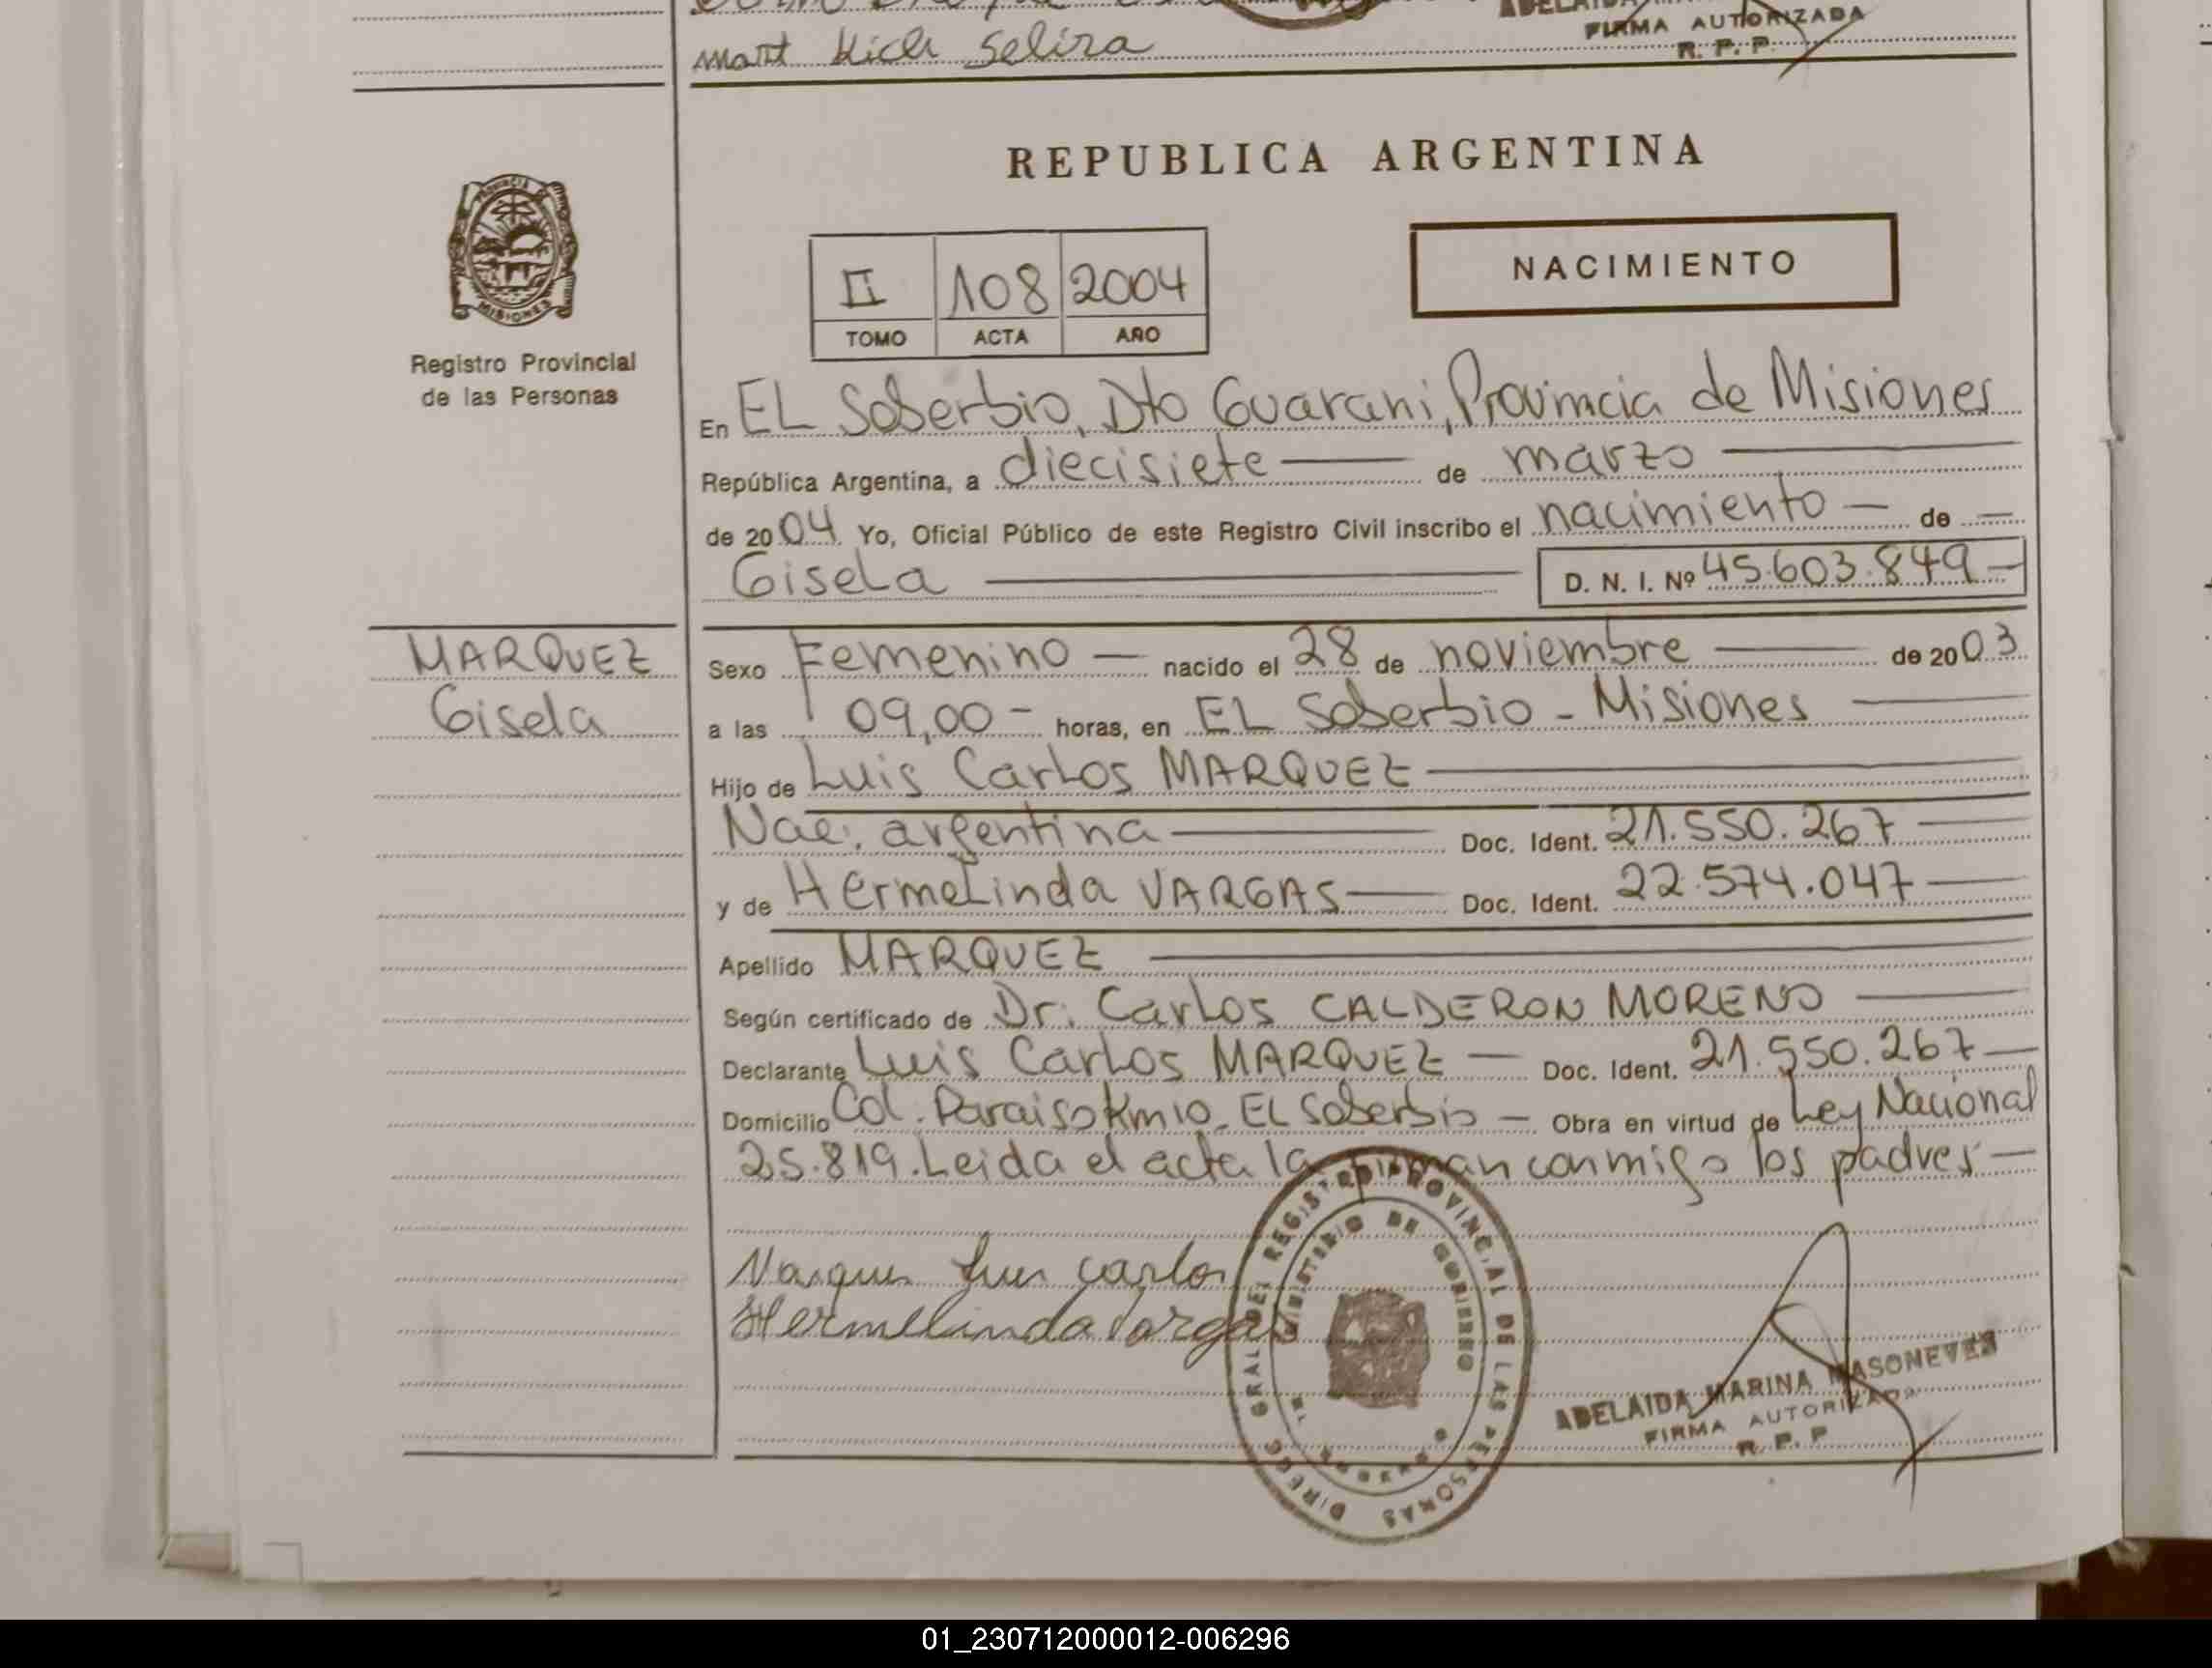 matt Kich Selira
FIRMA AUTORIZADA
R. P. P.
REPUBLICA ARGENTINA
PROVINCIA DE MISIONES
Registro Provincial
de las Personas
II 108 2004
TOMO ACTA AÑO
NACIMIENTO
En EL Soberbio, Dto Guarani, Provincia de Misiones
República Argentina, a diecisiete — de marzo —
de 2004. Yo, Oficial Público de este Registro Civil inscribo el nacimiento — de —
Gisela — D. N. I. Nº 45.603.849 —
MARQUEZ
Gisela
Sexo Femenino — nacido el 28 de noviembre — de 2003
a las 09,00 - horas, en EL Soberbio - Misiones —
Hijo de Luis Carlos MARQUEZ —
Nac. argentina — Doc. Ident. 21.550.267 —
y de HermeLinda VARGAS — Doc. Ident. 22.574.047 —
Apellido MARQUEZ —
Según certificado de Dr. Carlos CALDERON MORENO —
Declarante Luis Carlos MARQUEZ — Doc. Ident. 21.550.267 —
Domicilio Col. Paraiso Km 10 - EL Soberbio — Obra en virtud de Ley Nacional
25.819. Leida el acta la firman conmigo los padres —
Marques Luis Carlos
Hermelinda Vargas
DIRECC. GRAL. DEL REGISTRO PROVINCIAL DE LAS PERSONAS
MINISTERIO DE GOBIERNO
ADELAIDA MARINA MASONEVES
FIRMA AUTORIZADA
R. P. P
01_230712000012-006296